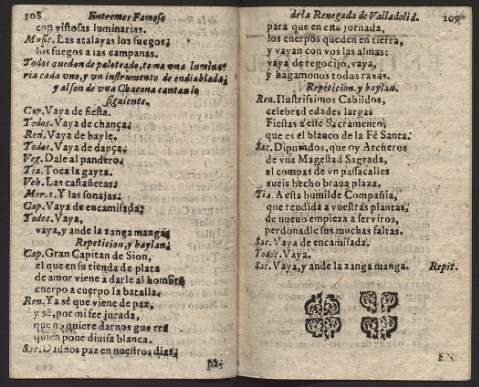 108 Entremes Famoso
con vistosas luminarias.
Music. Las atalayas los fuegos,
los fuegos a las campanas.
Todos quedan de paloteado, toma vna lumina-
ria cada vno, y vn instrumento de endiablada,
y al son de vna Chacona cantan lo
siguiente.
Cap. Vaya de fiesta.
Todos. Vaya de chança;
Ren. Vaya de bayle,
Todos. Vaya de dança;
Veg. Dale al pandero,
Tia. Toca la gayta.
Veh. Las castañetas;
Mor. 1. Y las sonajas;
Cap. Vaya de encamisada;
Todos. Vaya,
vaya, y ande la zanga manga;
Repeticion, y baylan;
Cap. Gran Capitan de Sion,
el que en su tienda de plata
de amor viene a darle al hombre
cuerpo a cuerpo la batalla.
Ren. Ya sè que viene de paz,
y sè, por mi fee jurada,
que no quiere darnos guerra
quien pone diuisa blanca.
Sac. Dadnos paz en nuestros dias,
pa-
de la Renegada de Valladolid. 109
para que en esta jornada,
los cuerpos queden en tierra,
y vayan con vos las almas:
vaya de regocijo, vaya,
y hagamonos todos raxas.
Repeticion, y baylan.
Ren. Ilustrissimos Cabildos,
celebrad edades largas
Fiestas a este Sacramento,
que es el blanco de la Fè Santa.
Sac. Diputados, que oy Archeros
de vna Magestad Sagrada,
al compas de vn passacalles
aueis hecho braua plaza.
Tia. A esta humilde Compañia,
que rendida a vuestras plantas,
de nueuo empieza a seruiros,
perdonadle sus muchas faltas.
Sac. Vaya de encamisada.
Todos. Vaya.
Sac. Vaya, y ande la zanga manga. Repit.
EN